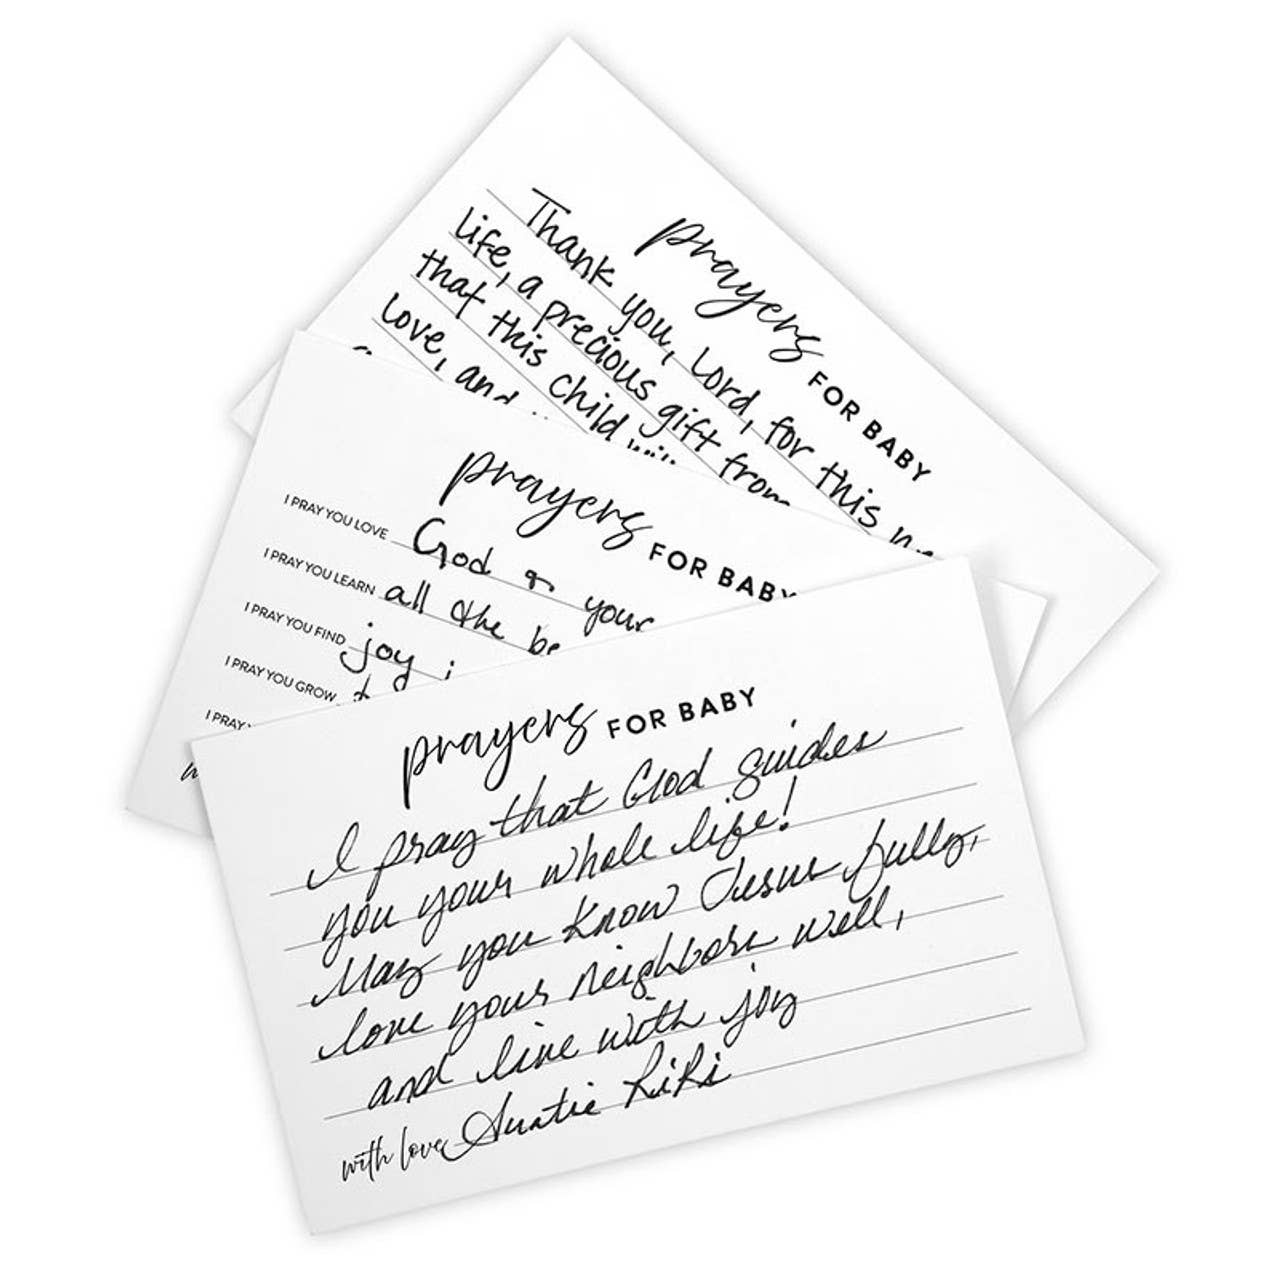 prayers FOR BABY
Thank you, Lord, for this
life, a precious gift from
that this child
love, and
prayers FOR BABY
I PRAY YOU LOVE God & your
I PRAY YOU LEARN all the be
I PRAY YOU FIND joy i
I PRAY YOU GROW
I PRAY
prayers FOR BABY
I pray that God guides
you your whole life!
May you know Jesus fully,
love your neighbors well,
and live with joy
with love, Auntie RiRi